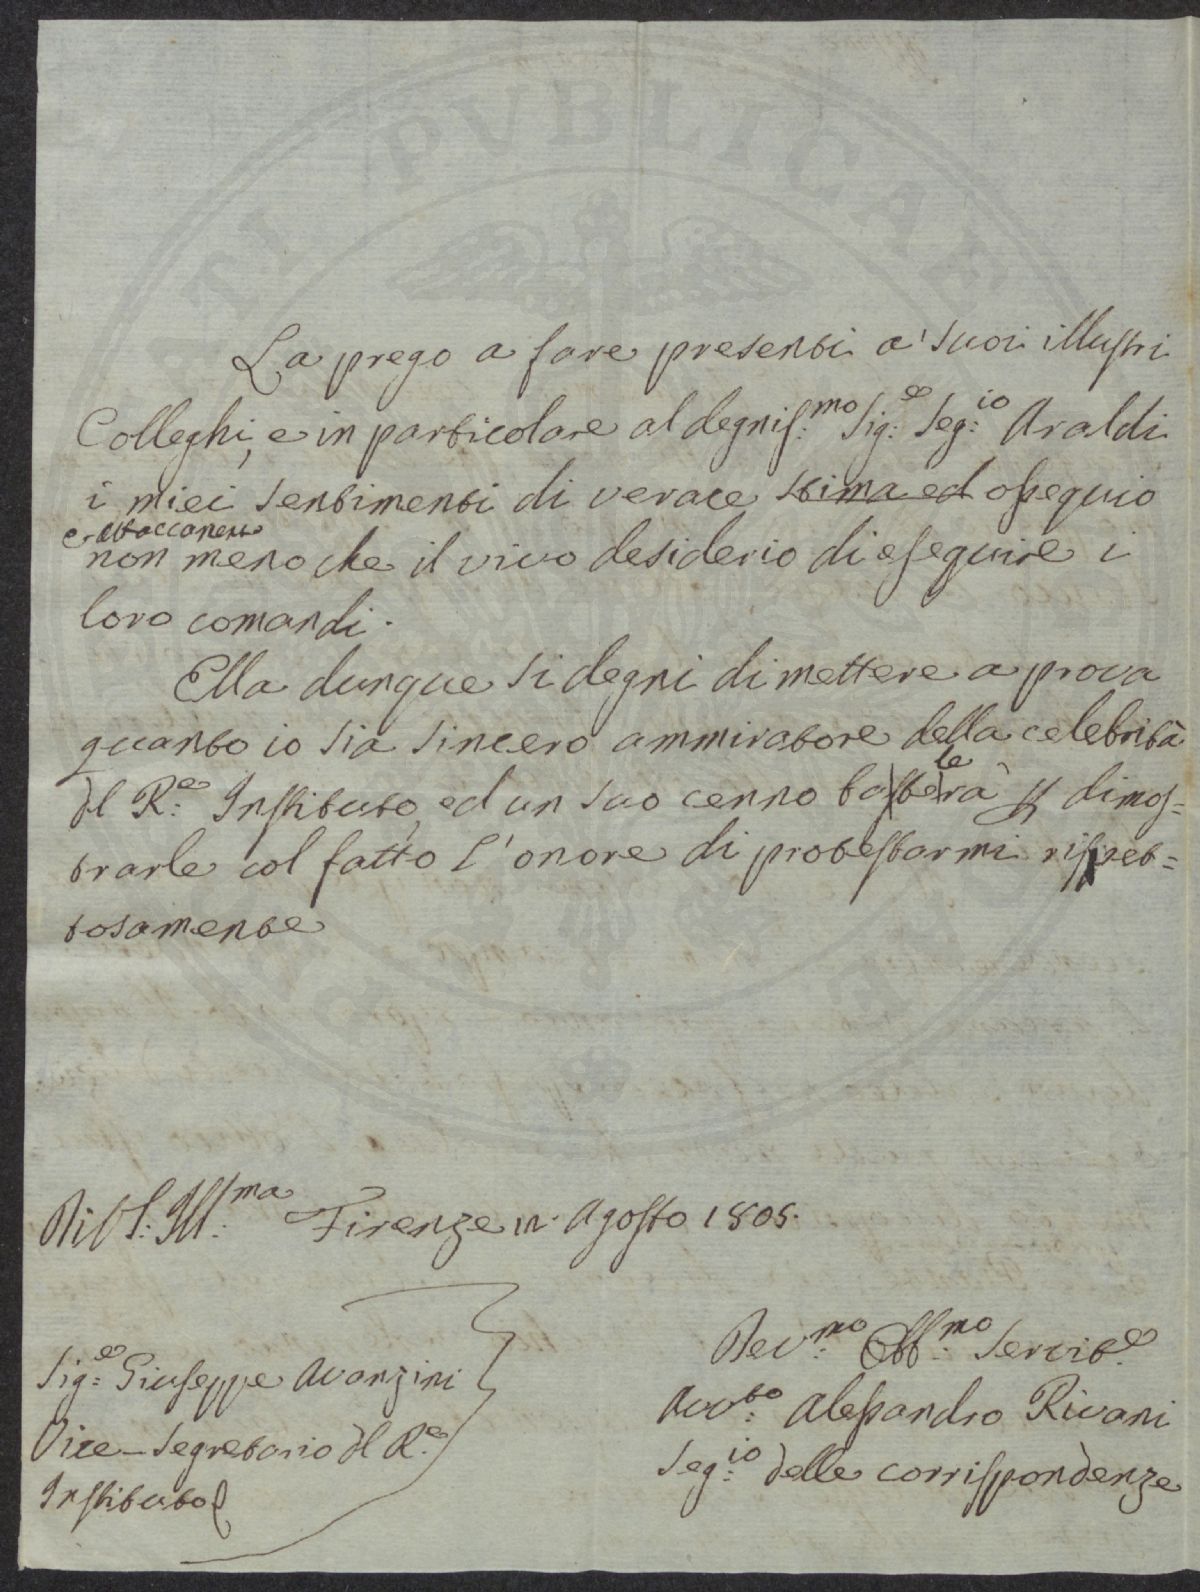 La prego a fare presenti a' suoi illustri
Colleghi, e in particolare al degnis:mo Sig:e Seg:io Araldi
i miei sentimenti di verace stima ed ossequio
e attaccamento
non meno che il vivo desiderio di eseguire i
loro comandi.
Ella dunque si degni di mettere a prova
quanto io sia sincero ammiratore della celebrità
del R:e Instituto, ed un suo cenno basterà per dimos=
trarle col fatto l'onore di protestarmi rispet=
tosamente
Di V.S. Ill:ma Firenze Agosto 1805.
Sig:e Giuseppe Avanzini
Vice-Segretario del R:e
Instituto
Dev:mo Obb:mo Servit:e
Avv:to Alessandro Rivani
Seg:io delle corrispondenze
PVBLICAE